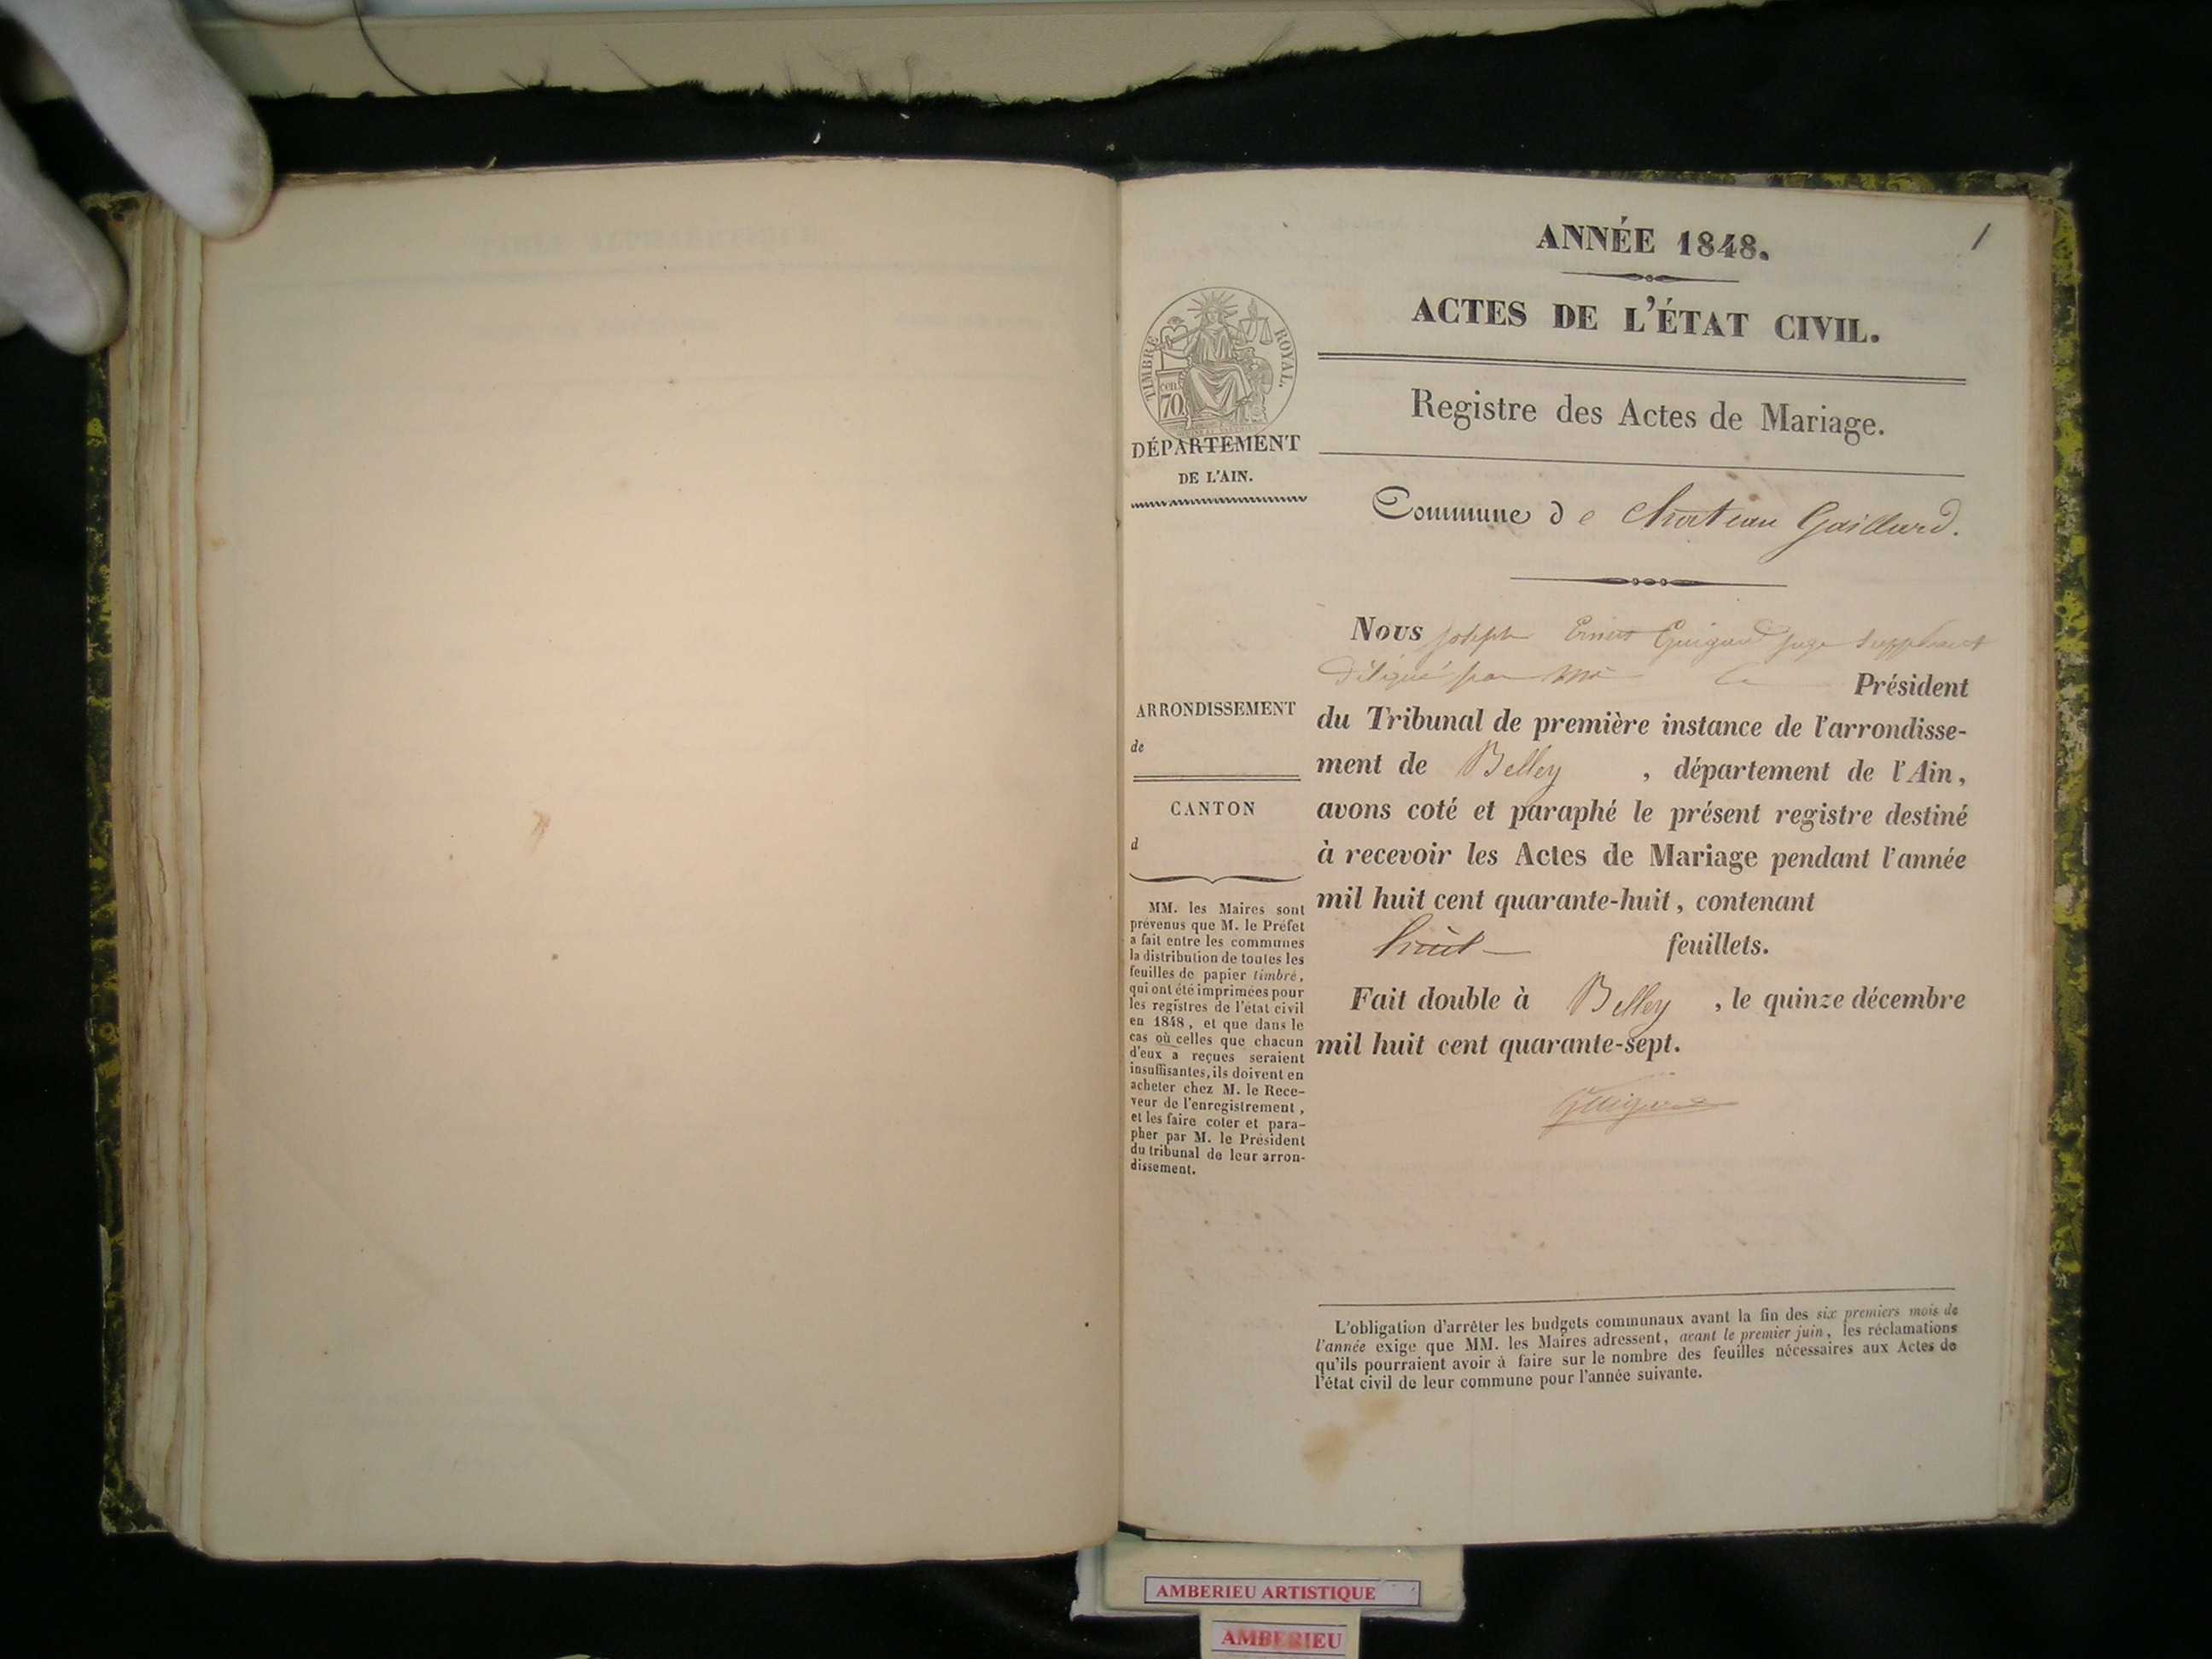 1
ANNÉE 1848.
ACTES DE L'ÉTAT CIVIL.
Registre des Actes de Mariage.
TIMBRE ROYAL.
cen.
70
DÉPARTEMENT
DE L'AIN.
Commune de Chateau Gaillard.
Nous joseph Ernest Guigard juge suppléant
Délégué par Mr Le Président
du Tribunal de première instance de l'arrondisse-
ment de Belley, département de l'Ain,
avons coté et paraphé le présent registre destiné
à recevoir les Actes de Mariage pendant l'année
mil huit cent quarante-huit, contenant
huit feuillets.
Fait double à Belley, le quinze décembre
mil huit cent quarante-sept.
ARRONDISSEMENT
de
CANTON
d
MM. les Maires sont
prévenus que M. le Préfet
a fait entre les communes
la distribution de toutes les
feuilles de papier timbré,
qui ont été imprimées pour
les registres de l'état civil
en 1848, et que dans le
cas où celles que chacun
d'eux a reçues seraient
insuffisantes, ils doivent en
acheter chez M. le Rece-
veur de l'enregistrement,
et les faire coter et para-
pher par M. le Président
du tribunal de leur arron-
dissement.
L'obligation d'arrêter les budgets communaux avant la fin des six premiers mois de
l'année exige que MM. les Maires adressent, avant le premier juin, les réclamations
qu'ils pourraient avoir à faire sur le nombre des feuilles nécessaires aux Actes de
l'état civil de leur commune pour l'année suivante.
AMBERIEU ARTISTIQUE
AMBERIEU